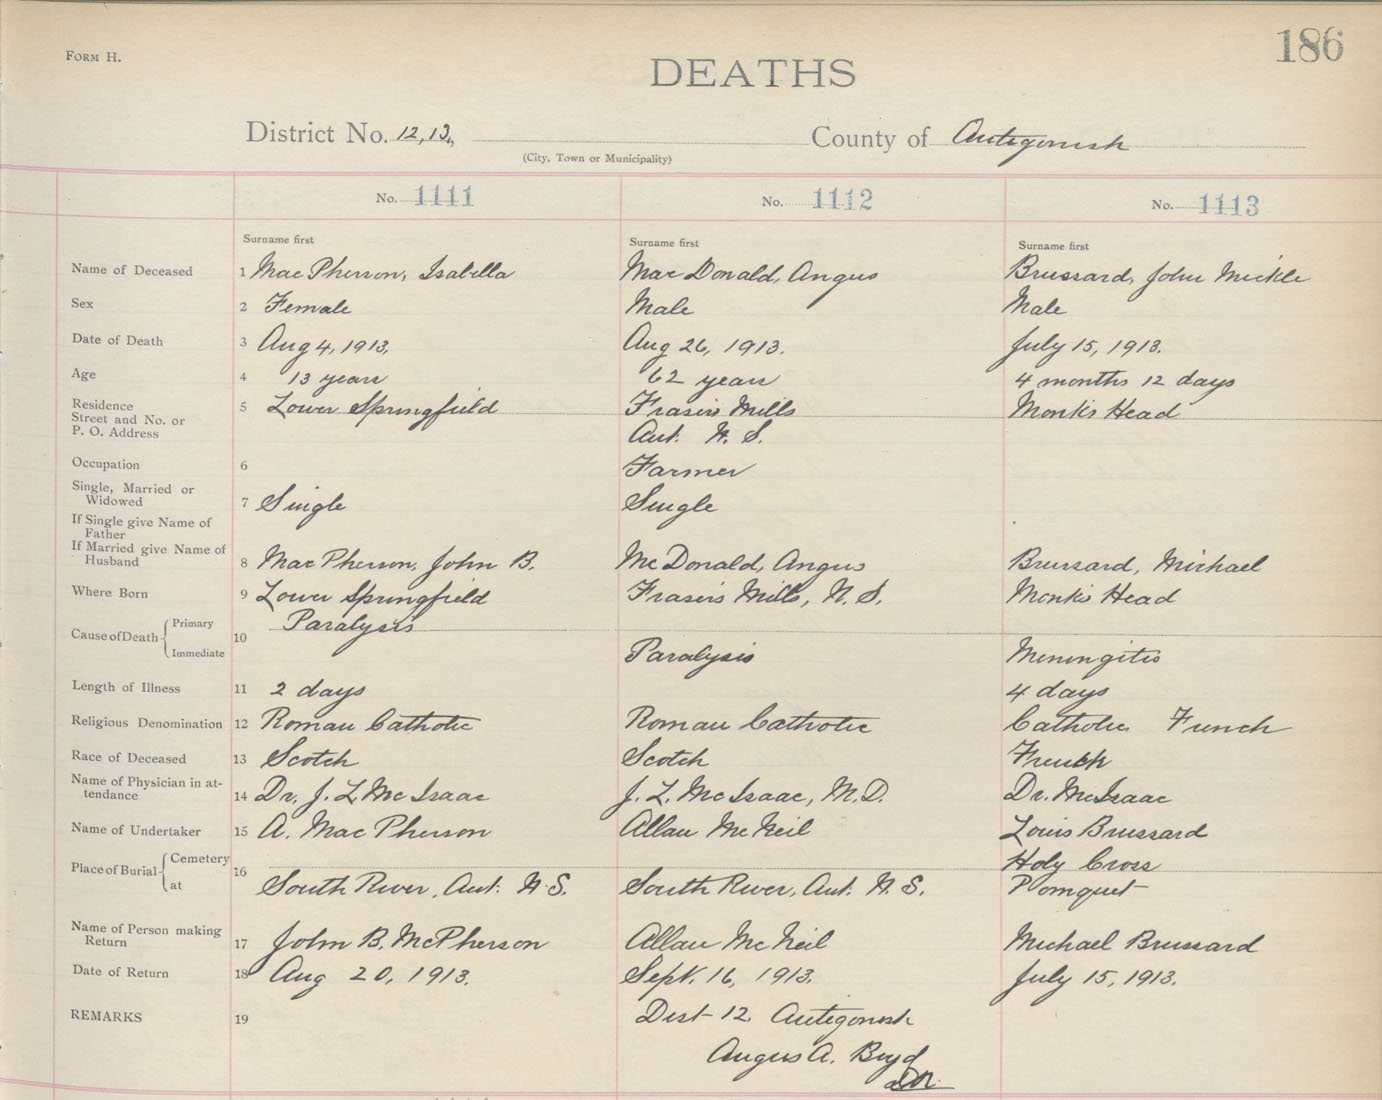 FORM H.
186
DEATHS
District No. 12, 13,
County of Antigonish
(City, Town or Municipality)
No. 1111
No. 1112
No. 1113
Surname first
Surname first
Surname first
Name of Deceased 1 MacPherson, Isabella
MacDonald, Angus
Brussard, John Mickle
Sex 2 Female
Male
Male
Date of Death 3 Aug 4, 1913.
Aug 26, 1913.
July 15, 1913.
Age 4 13 years
62 years
4 months 12 days
Residence
Street and No. or
P. O. Address
5 Lower Springfield
Frasers Mills
Ant. N. S.
Monks Head
Occupation 6
Farmer
Single, Married or
Widowed
7 Single
Single
If Single give Name of
Father
If Married give Name of
Husband
8 MacPherson, John B.
McDonald, Angus
Brussard, Michael
Where Born 9 Lower Springfield
Frasers Mills, N. S.
Monks Head
Cause of Death { Primary
Immediate
10
Paralysis
Paralysis
Meningitis
Length of Illness 11 2 days
4 days
Religious Denomination 12 Roman Catholic
Roman Catholic
Catholic French
Race of Deceased 13 Scotch
Scotch
French
Name of Physician in at-
tendance
14 Dr. J. L. McIsaac
J. L. McIsaac, M.D.
Dr. McIsaac
Name of Undertaker 15 A. MacPherson
Allan McNeil
Louis Brussard
Place of Burial { Cemetery
at
16
South River, Ant. N. S.
South River, Ant. N. S.
Holy Cross
Pomquet
Name of Person making
Return
17 John B. McPherson
Allan McNeil
Michael Brussard
Date of Return 18 Aug 20, 1913.
Sept. 16, 1913.
July 15, 1913.
REMARKS 19
Dist 12 Antigonish
Angus A. Boyd
DR.